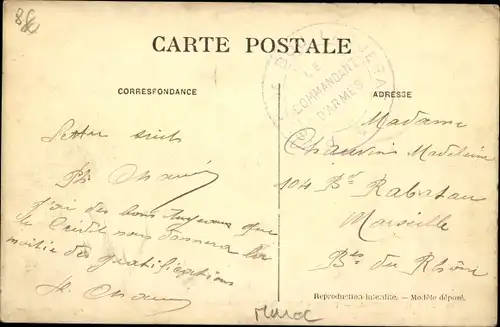 CARTE POSTALE
LE
COMMANDANT
D'ARMES
CORRESPONDANCE
ADRESSE
Lettre suit
Ph.
j'ai des bons tuyaux que
le Crédit nous donnera la
moitié des gratifications
Madame
Chauvin Madeleine
104 Bd Rabatau
Marseille
Bes du Rhône
Reproduction interdite. — Modèle déposé.
Maroc